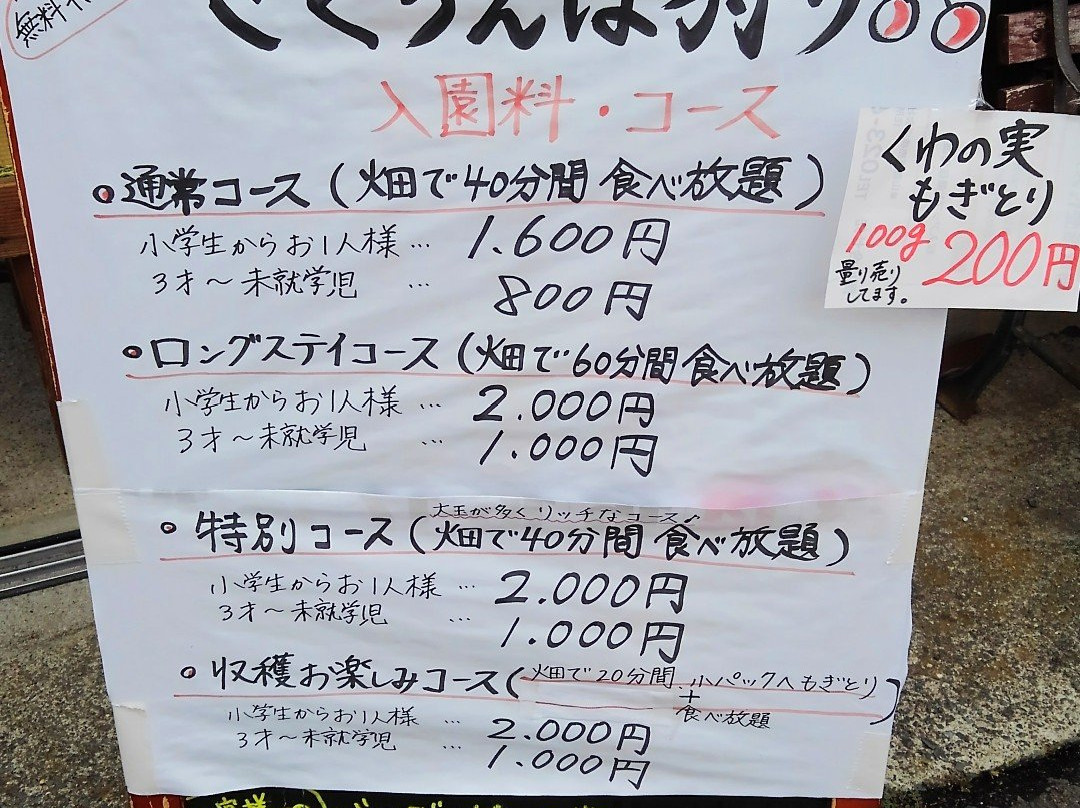 無料
さくらんぼ狩り
入園料・コース
通常コース(畑で40分間 食べ放題)
小学生からお1人様… 1.600円
3才〜未就学児 … 800円
ロングステイコース(畑で60分間食べ放題)
小学生からお1人様… 2.000円
3才〜未就学児 … 1.000円
大玉が多くリッチなコース♪
特別コース(畑で40分間 食べ放題)
小学生からお1人様… 2.000円
3才〜未就学児 … 1.000円
収穫お楽しみコース(畑で20分間 小パックへもぎとり
+
食べ放題)
小学生からお1人様… 2.000円
3才〜未就学児 … 1.000円
くわの実
もぎとり
100g 200円
量り売り
してます。